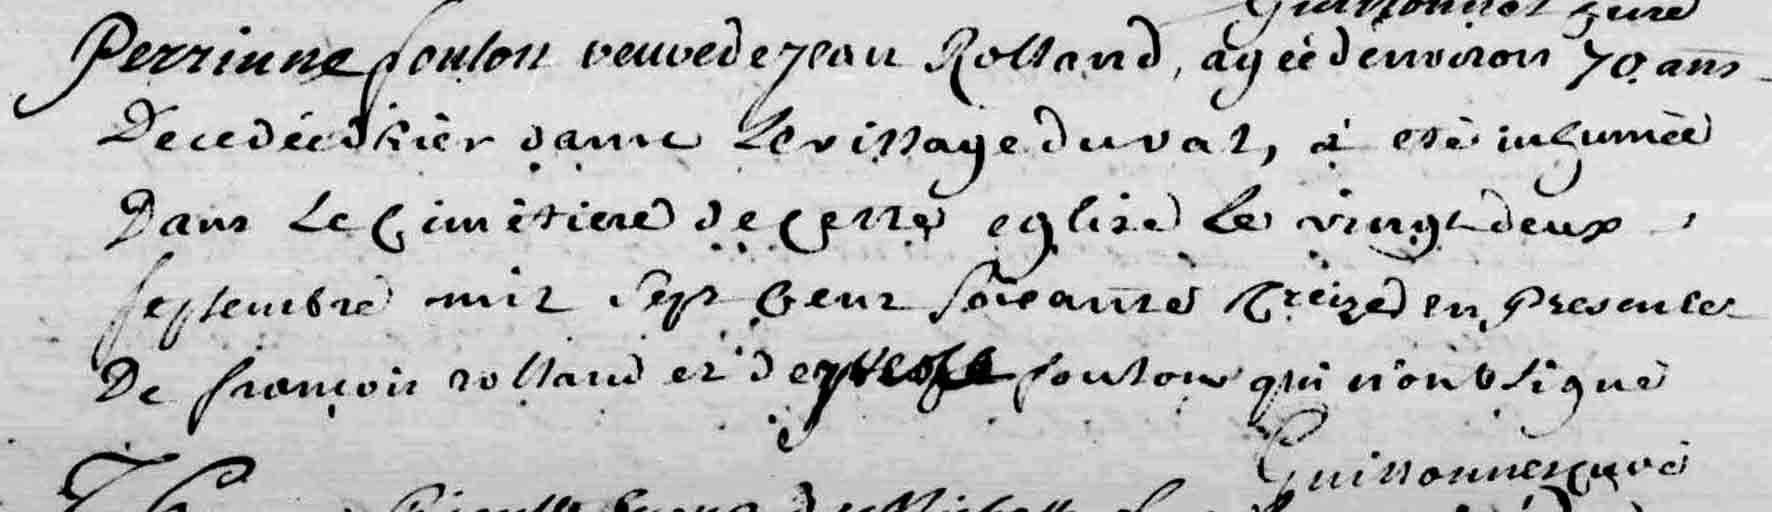 Guillonnet curé
Perrinne foulon veuve de jean Rolland, agéé d'environ 70. ans
Decedéé hiér dans le village du val, a eté inhumeé
Dans le Cimetiere de Cette eglise le vingt deux
septembre mil sept Cent soixante treize en presence
De françois rolland et de foulon qui n'ont signé
curé